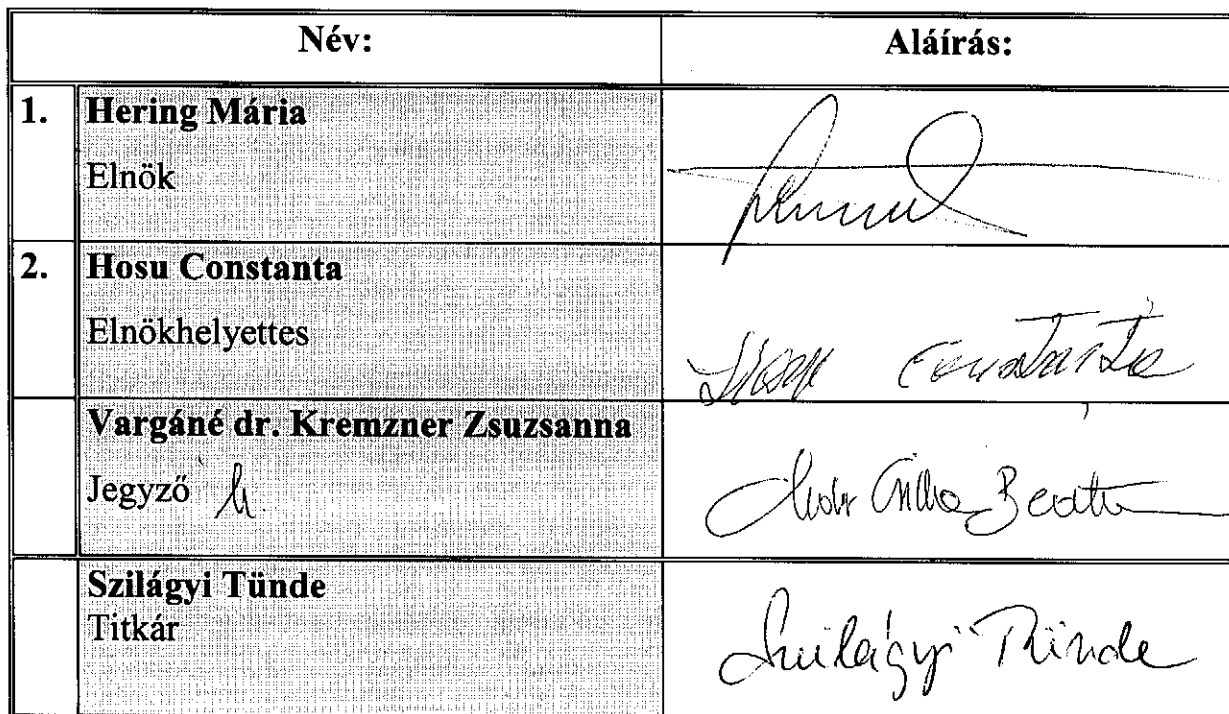 Név:
Aláírás:
1.
Hering Mária
Elnök
2.
Hosu Constanta
Elnökhelyettes
Hosu Constanta
Vargáné dr. Kremzner Zsuzsanna
Jegyző h
Beáta
Szilágyi Tünde
Titkár
Szilágyi Tünde